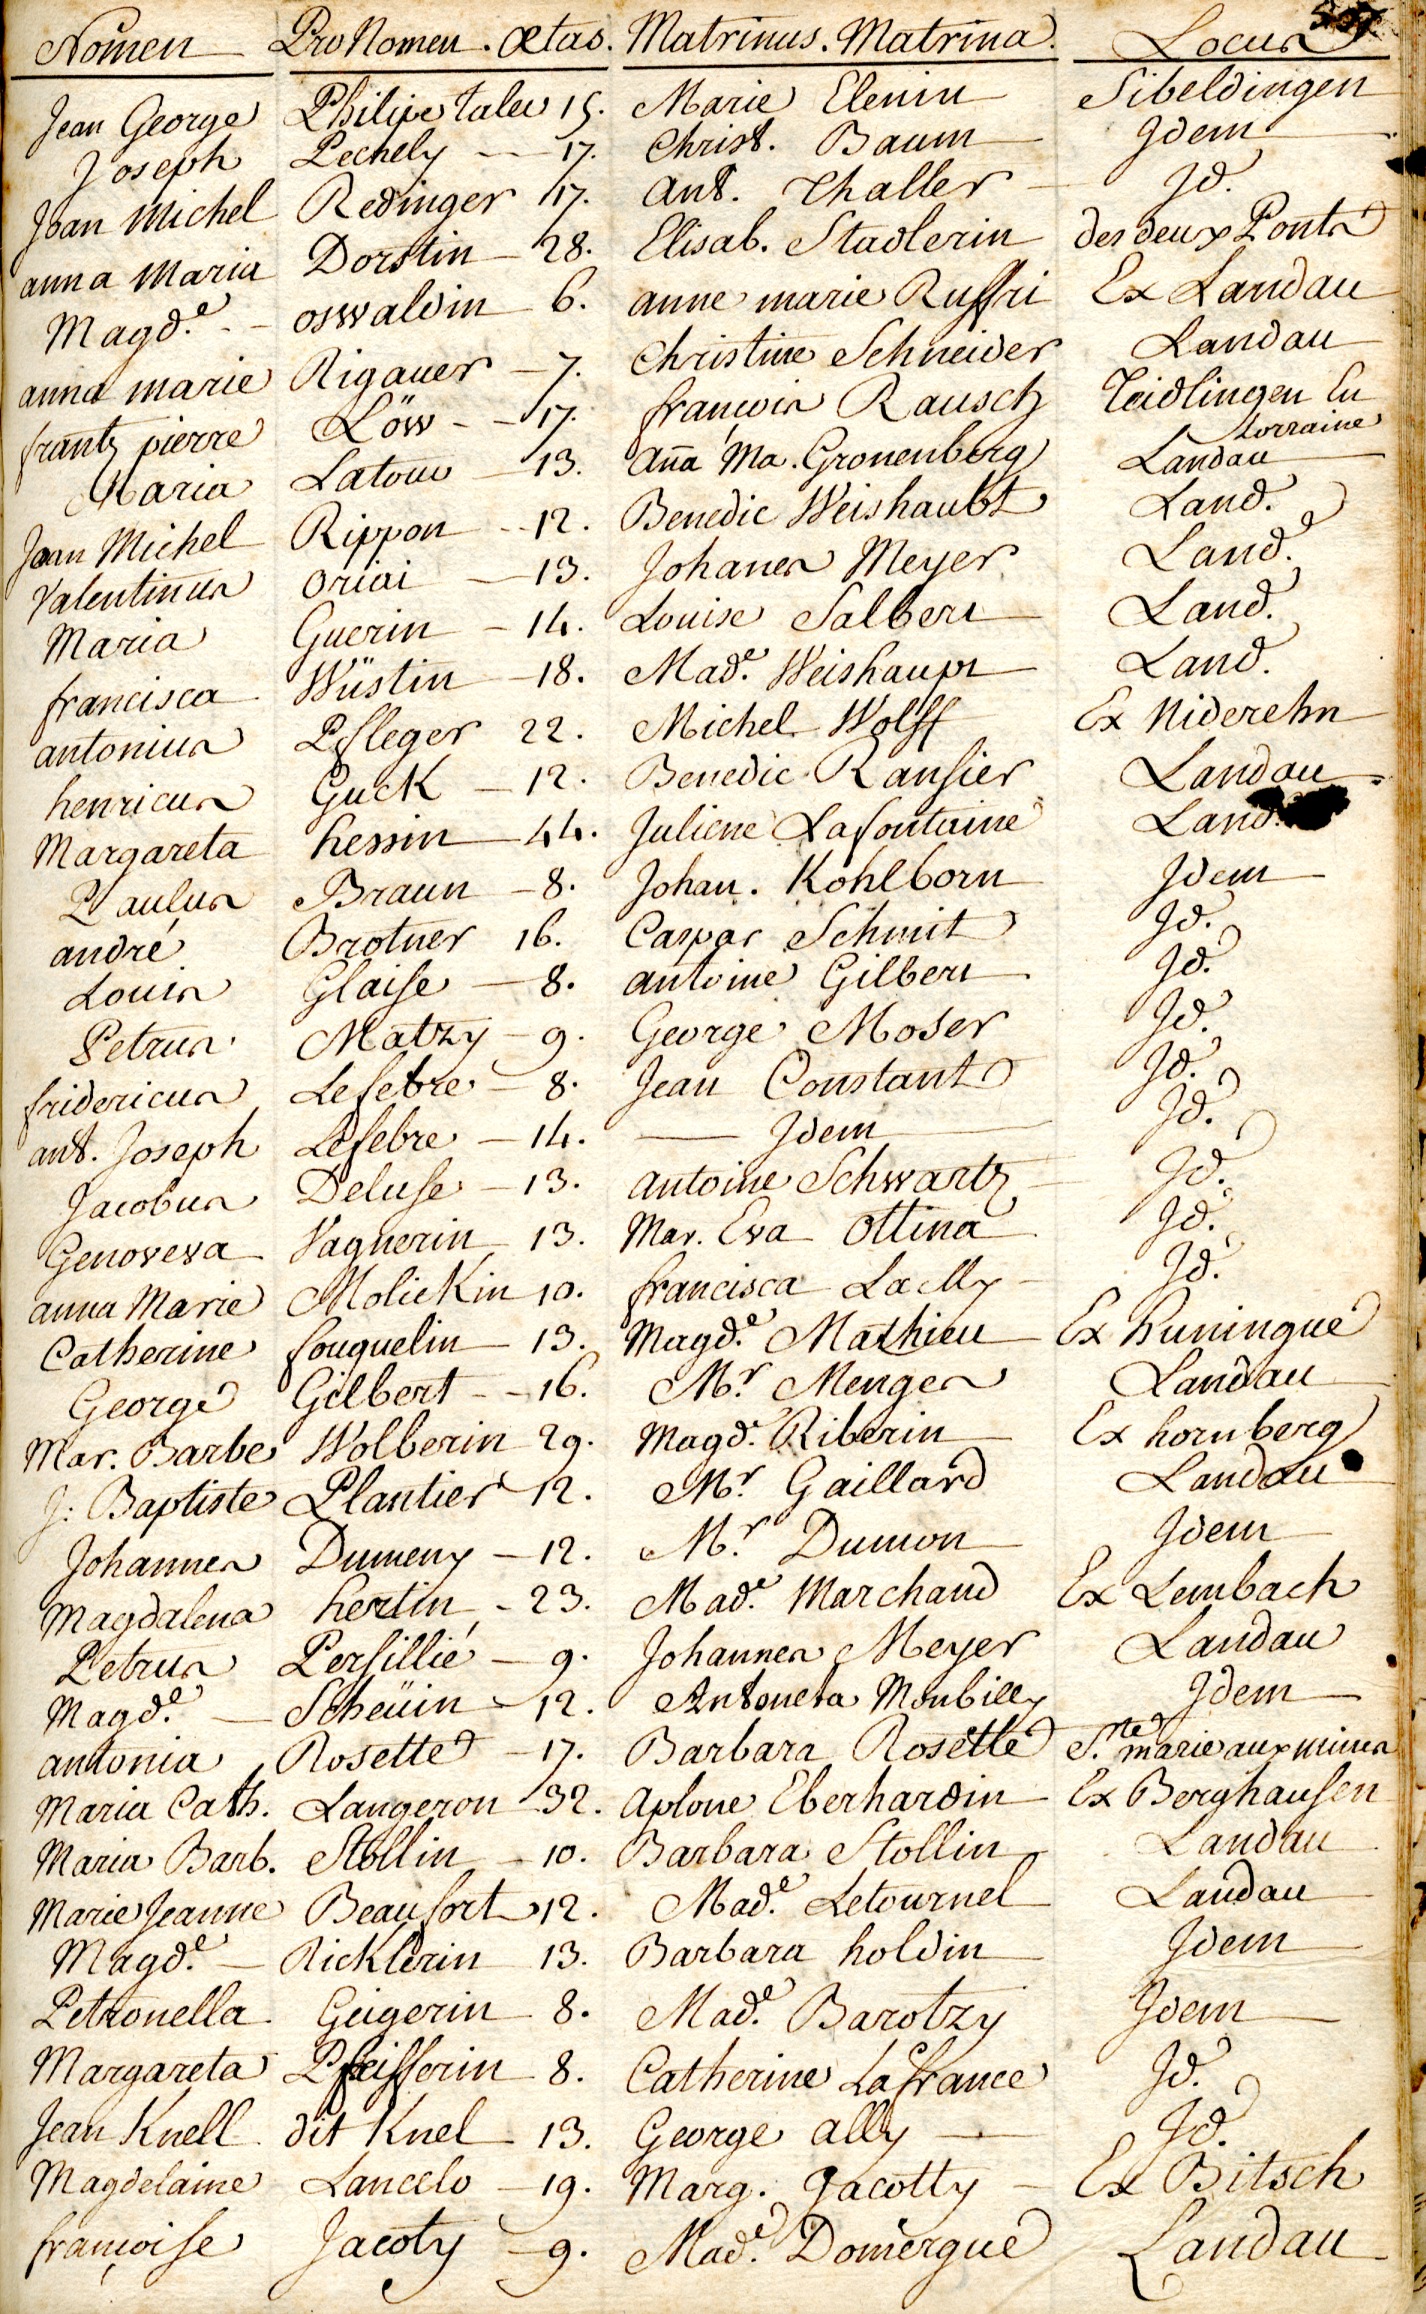 Nomen ProNomen. Ætas. Matrinus. Matrina. Locus
Jean George Philipe Taleu 15. Marie Elenin Sibeldingen
Joseph Pechely 17. Christ. Baum Idem
Joan Michel Redinger 17. Ant. Thaller Id.
anna Maria Dorstin 28. Elisab. Stadlerin des deux Ponts
Magd.e oswaldin 6. anne marie Ruffri Ex Landau
anna marie Rigauer 7. Christine Schneider Landau
frantz pierre Löw 17. françois Rausch Teidlingen En Lorraine
Maria Latour 13. Aña Ma. Gronenberg Landau
Joan Michel Rippon 12. Benedic Weishaubt Land.
Valentinus oriai 13. Johanes Meyer Land.
Maria Guerin 14. Louise Salbert Land.
francisca Wüstin 18. Mad.e Weishaupt Land.
antonius Pfleger 22. Michel Wolff Ex Niderehn
henricus Guck 12. Benedic Ransier Landau
Margareta hessin 44. Juliene Lafontaine Land.
Paulus Braun 8. Johan. Kohlborn Idem
andré Brotner 16. Caspar Schmit Id.
Louis Glaise 8. antoine Gilbert Id.
Petrus Matzy 9. George Moser Id.
fridericus Lefebre 8. Jean Constant Id.
ant. Joseph Lefebre 14. Idem Id.
Jacobus Deluse 13. antoine Schwartz Id.
Genoveva Vagnerin 13. Mar. Eva Ottina Id.
anna Marie Molickin 10. francisca LacMy Id.
Catherine fouquelin 13. Magd.e Mathieu Ex huningue
George Gilbert 16. M.r Menges Landau
Mar. Barbe Wolberin 29. Magd.e Riberin Ex hornberg
J: Baptiste Plantier 12. M.r Gaillard Landau
Johannes Dumeny 12. M.r Dumon Idem
Magdalena hertin 23. Mad.e Marchand Ex Lembach
Petrus Persillié 9. Johannes Meyer Landau
Magd.e Scheüin 12. Antoneta Monbilly Idem
antonia Rosette 17. Barbara Rosette S.te marie aux mines
Maria Cath. Langeron 32. Aplone Eberhardin Ex Berghausen
Maria Barb. Stollin 10. Barbara Stollin Landau
Marie Jeanne Beaufort 12. Mad.e Letournel Landau
Magd.e Ricklerin 13. Barbara holdin Idem
Petronella Geigerin 8. Mad.e Barotzy Idem
Margareta Pfeifferin 8. Catherine Lafrance Id.
Jean Knell dit Knel 13. George ally Id.
Magdelaine Lancelo 19. Marg. Jacotty Ex Bitsch
françoise Jacoty 9. Mad.e Domergue Landau